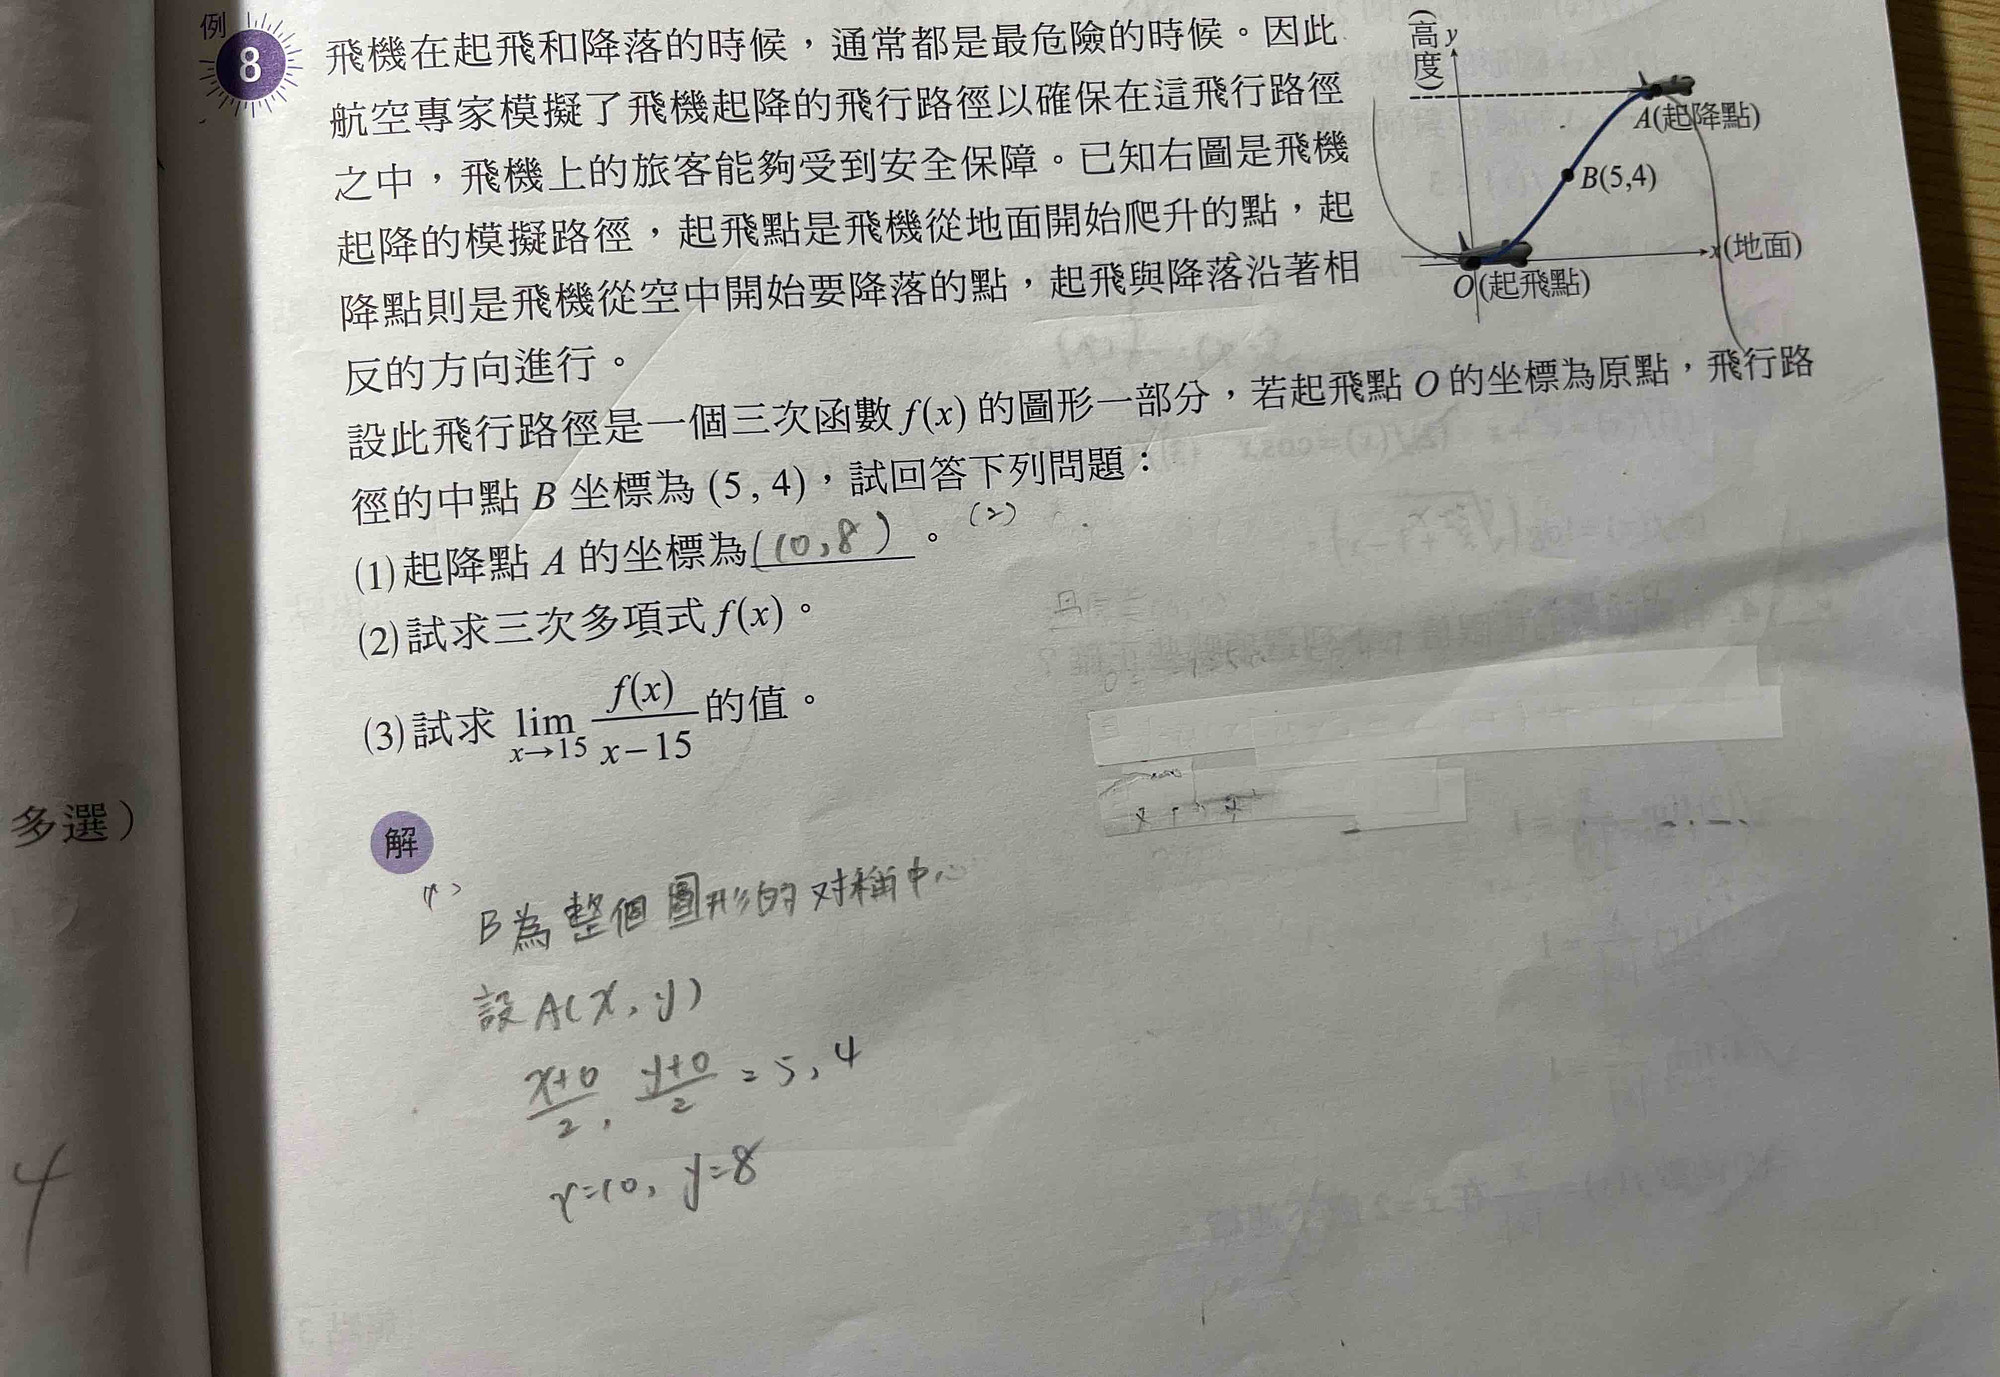 例
8
飛機在起飛和降落的時候，通常都是最危險的時候。因此
航空專家模擬了飛機起降的飛行路徑以確保在這飛行路徑
之中，飛機上的旅客能夠受到安全保障。已知右圖是飛機
起降的模擬路徑，起飛點是飛機從地面開始爬升的點，起
降點則是飛機從空中開始要降落的點，起飛與降落沿著相
反的方向進行。
(高度) y
A(起降點)
B(5,4)
x(地面)
O(起飛點)
設此飛行路徑是一個三次函數 f(x) 的圖形一部分，若起飛點 O 的坐標為原點，飛行路
徑的中點 B 坐標為 (5 , 4)，試回答下列問題：
(1)起降點 A 的坐標為(10,8)。 (2)
(2)試求三次多項式 f(x)。
(3)試求 lim x→15 f(x)/(x−15) 的值。
多選）
解
(1)
B為整個圖形的对稱中心
設A(x, y)
x+0/2, y+0/2 = 5, 4
x=10, y=8
4